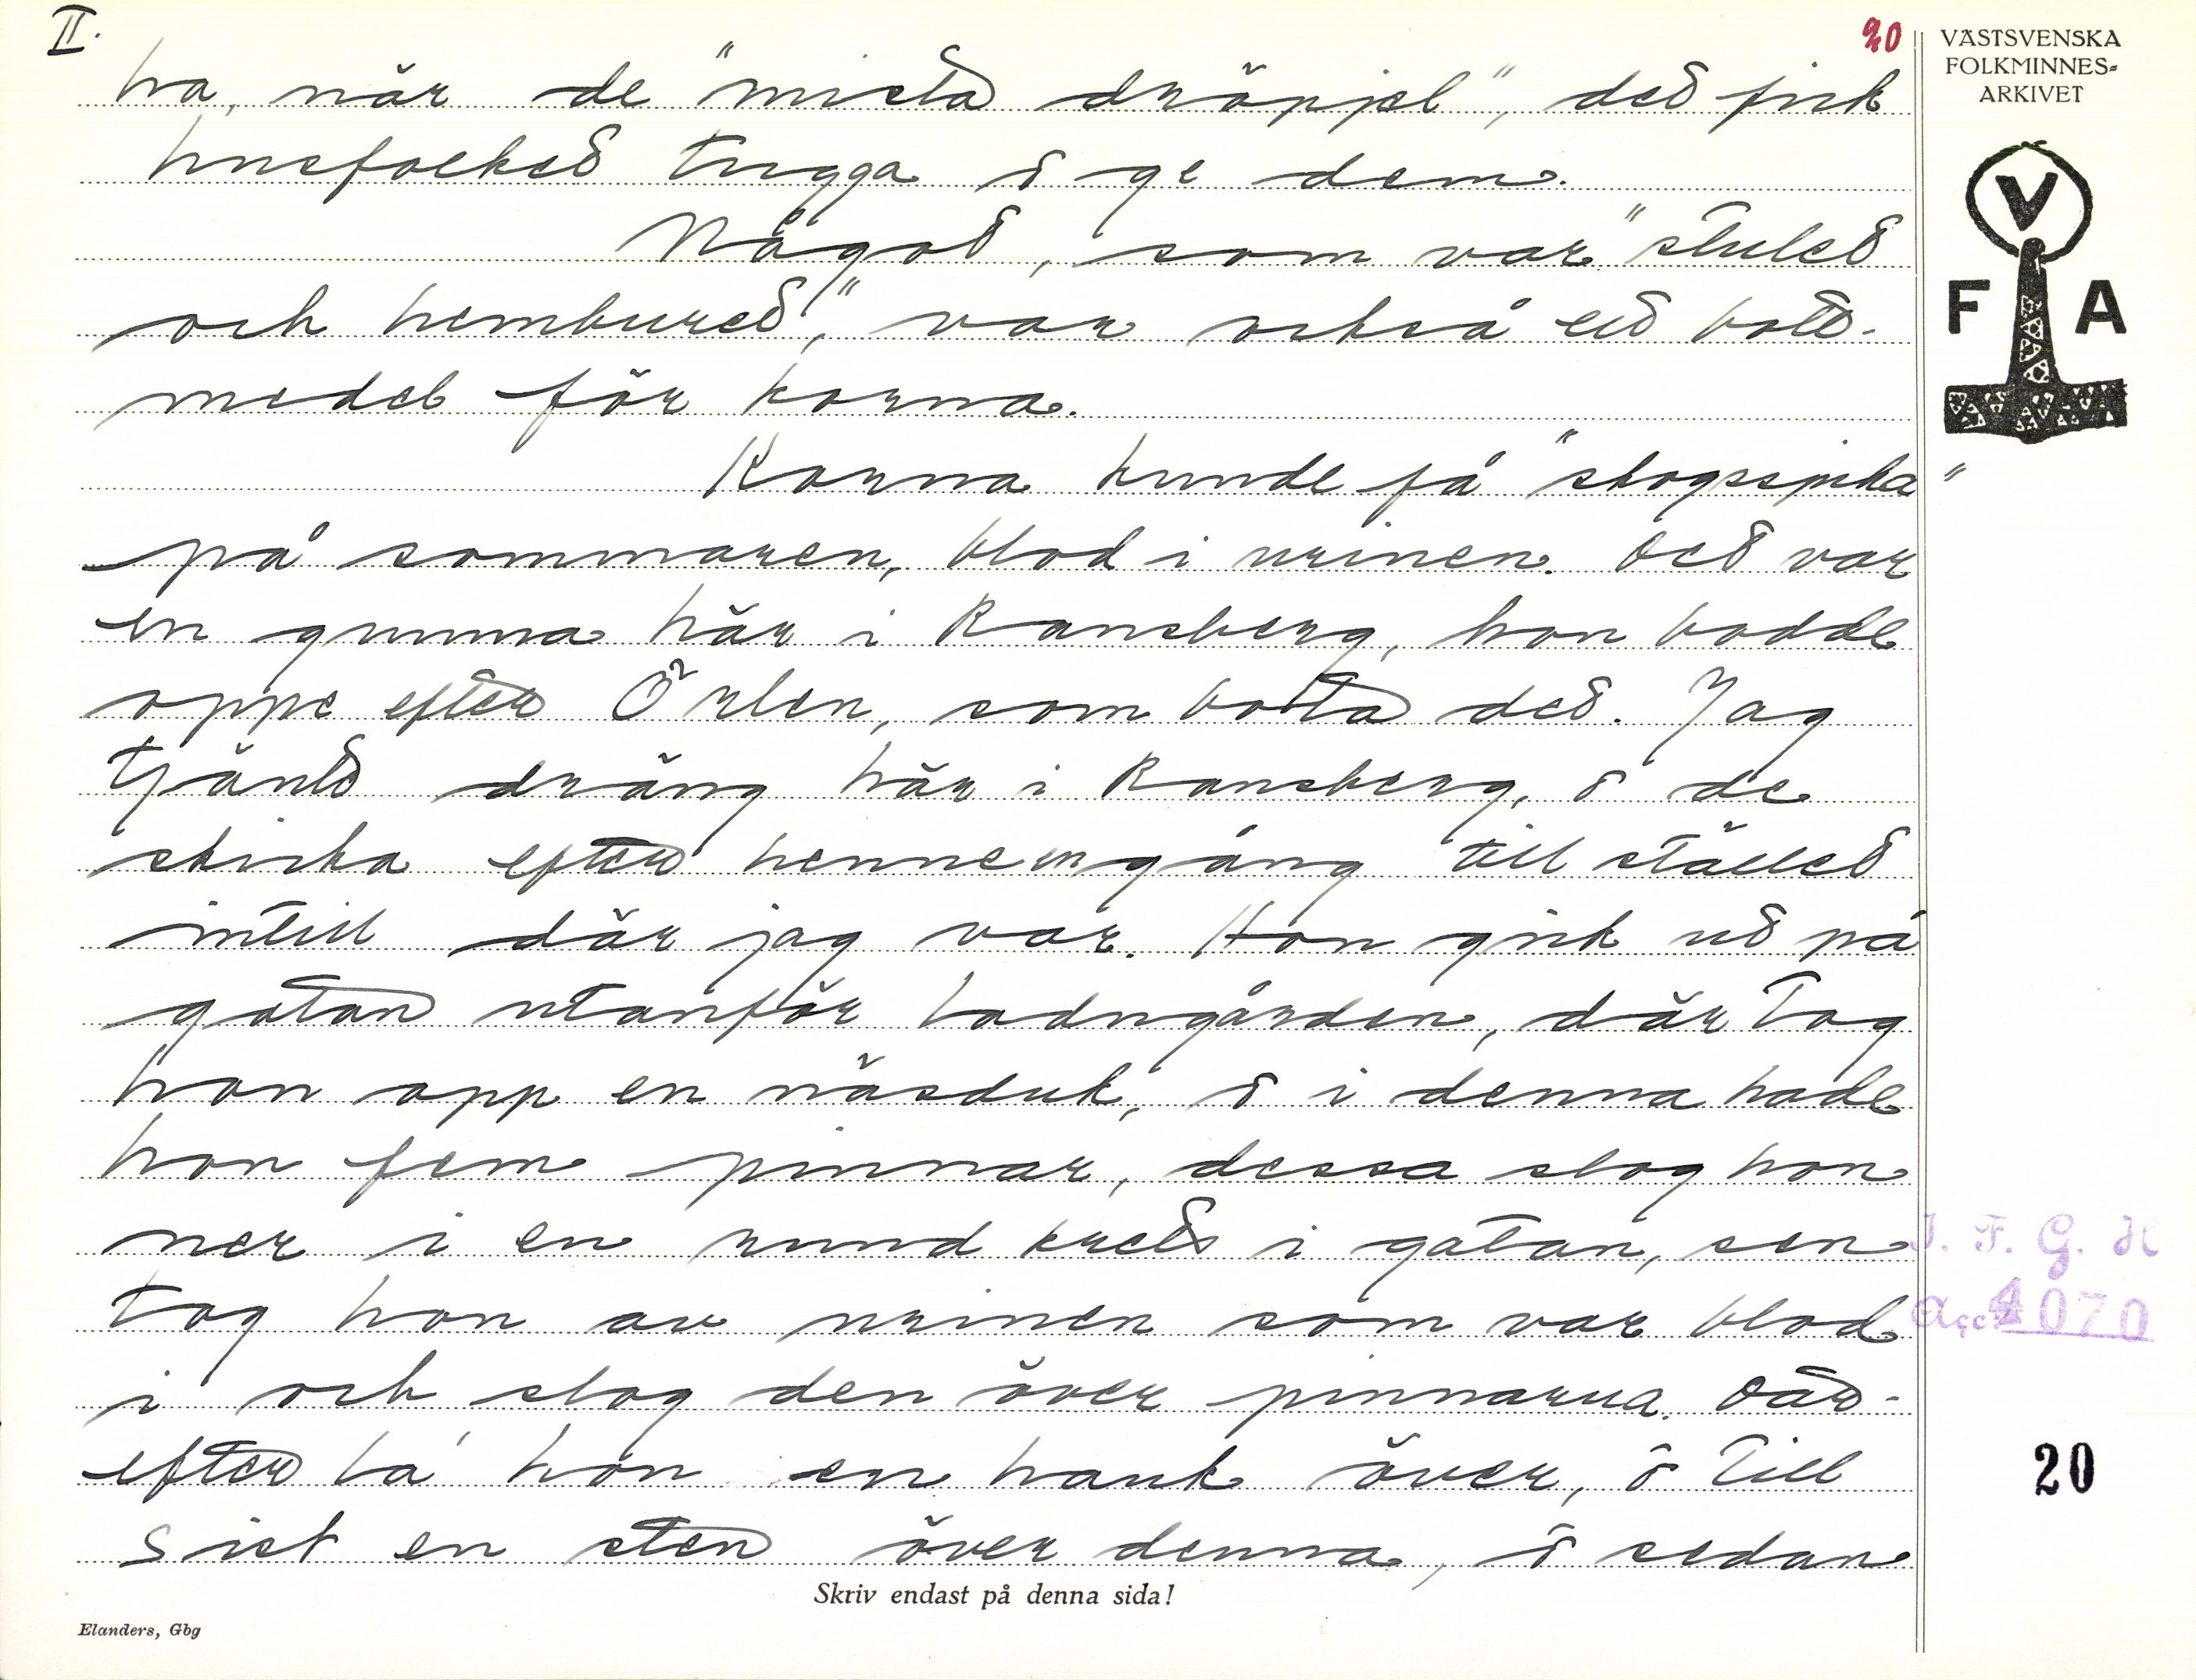 II.
20
ha, när de "mista dröppel", det fick
husfolket tugga å ge dem.
Något, som var "stulet
och hemburet", var också ett bott-
medel för korna.
Korna kunde få "skogssjuka"
på sommaren, blod i urinen. Det var
en gumma här i Ransberg, hon bodde
oppe efter Örlen, som bota det. Jag
tjänte dräng här i Ransberg, å de
skicka efter henne en gång till stället
intill där jag var. Hon gick ut på
gatan utanför ladugården, där tog
hon opp en näsduk, å i denna hade
hon fem pinnar, dessa slog hon
ner i en rund krets i gatan, sen
tog hon av urinen som var blod
i och slog den över pinnarna. Där-
efter la' hon en hank över, å till
sist en sten över denna, å sedan
Skriv endast på denna sida!
Elanders, Gbg
VÄSTSVENSKA
FOLKMINNES=
ARKIVET
V
F A
I. F. G. H
Acc. 4070
20